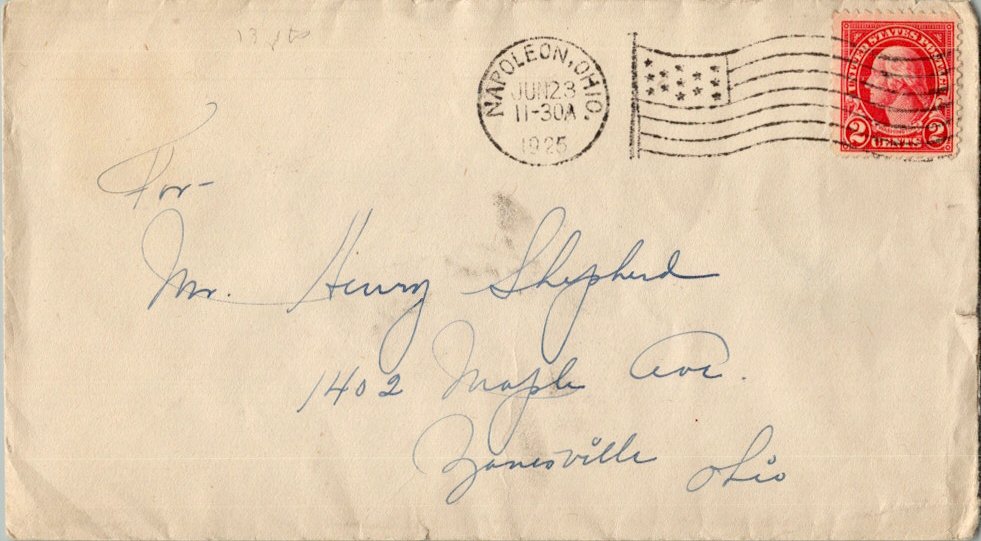 NAPOLEON, OHIO.
JUN 23
11-30A
1925
UNITED STATES POSTAGE
2 CENTS 2
For-
Mr. Henry Shepherd
1402 Maple Ave.
Zanesville Ohio